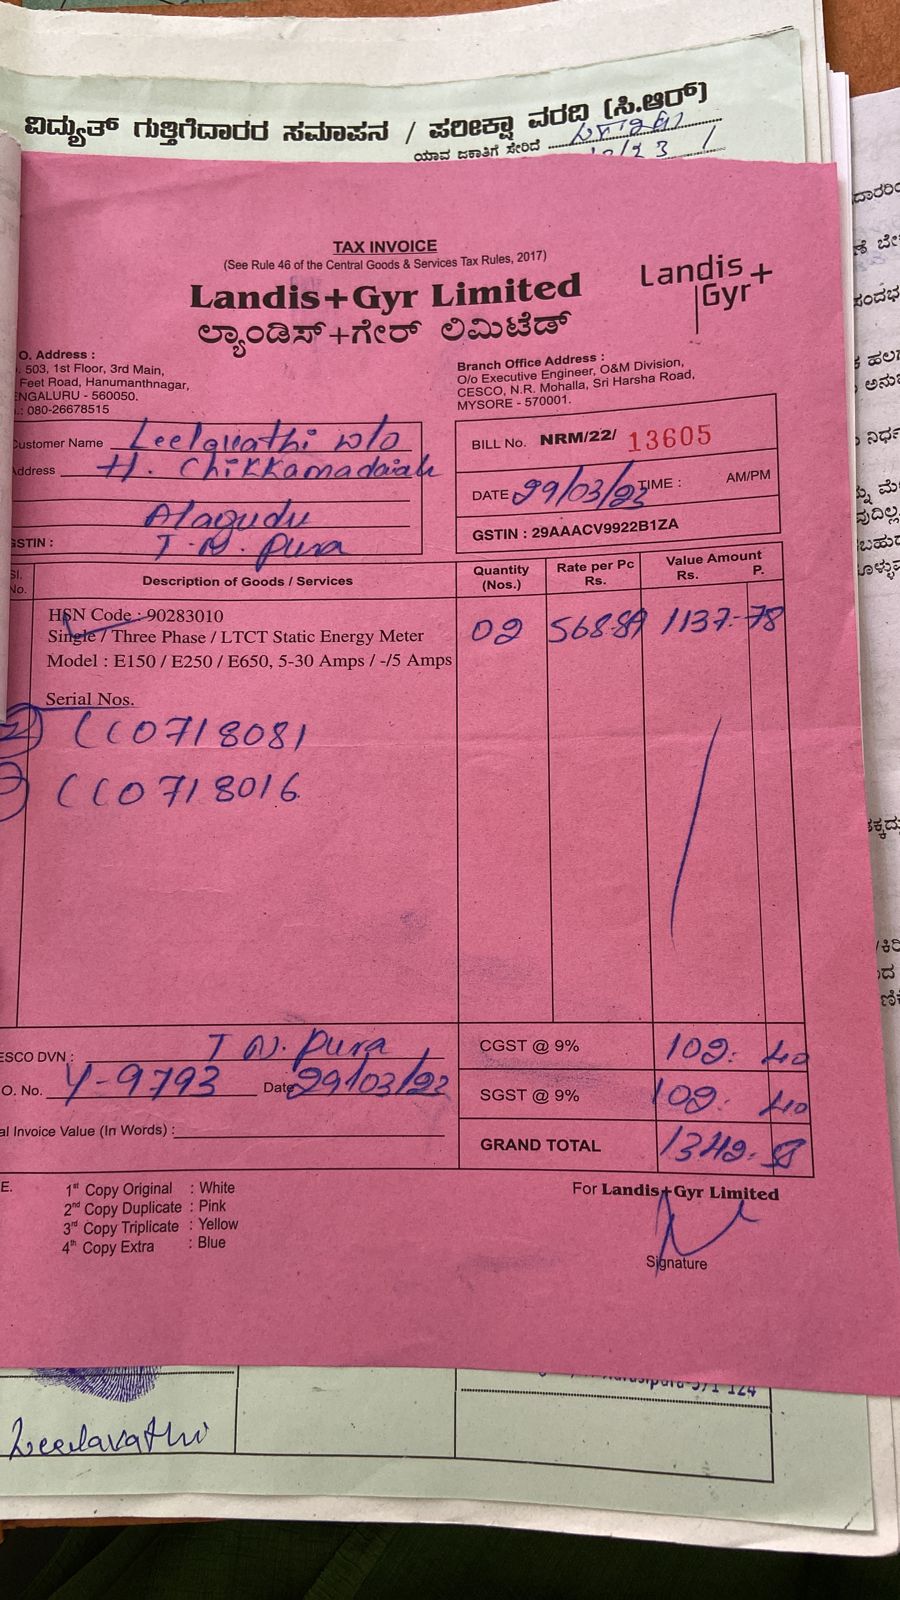 ವಿದ್ಯುತ್ ಗುತ್ತಿಗೆದಾರರ ಸಮಾಪನ / ಪರೀಕ್ಷಾ ವರದಿ (ಸಿ.ಆರ್)
ಯಾವ ಜಕಾತಿಗೆ ಸೇರಿದೆ
TAX INVOICE
(See Rule 46 of the Central Goods & Services Tax Rules, 2017)
Landis+Gyr Limited
ಲ್ಯಾಂಡಿಸ್+ಗೇರ್ ಲಿಮಿಟೆಡ್
Landis+
Gyr
O. Address :
503, 1st Floor, 3rd Main,
Feet Road, Hanumanthnagar,
ENGALURU - 560050.
.: 080-26678515
Branch Office Address :
O/o Executive Engineer, O&M Division,
CESCO, N.R. Mohalla, Sri Harsha Road,
MYSORE - 570001.
Customer Name Leelavathi w/o
Address H. Chikkamadaiah
Alagudu
GSTIN : T.N. Pura
BILL No. NRM/22/ 13605
DATE 29/03/23 TIME : AM/PM
GSTIN : 29AAACV9922B1ZA
Sl. No. Description of Goods / Services Quantity (Nos.) Rate per Pc Rs. Value Amount Rs. P.
HSN Code : 90283010
Single / Three Phase / LTCT Static Energy Meter 02 568-89 1137-78
Model : E150 / E250 / E650, 5-30 Amps / -/5 Amps
Serial Nos.
CC0718081
CC0718016
ESCO DVN : T N. Pura
O. No. Y-9793 Date 29/03/23
al Invoice Value (In Words) :
CGST @ 9% 102. 40
SGST @ 9% 102. 40
GRAND TOTAL 1342. 58
E. 1st Copy Original : White
2nd Copy Duplicate : Pink
3rd Copy Triplicate : Yellow
4th Copy Extra : Blue
For Landis+Gyr Limited
Signature
Leelavathi